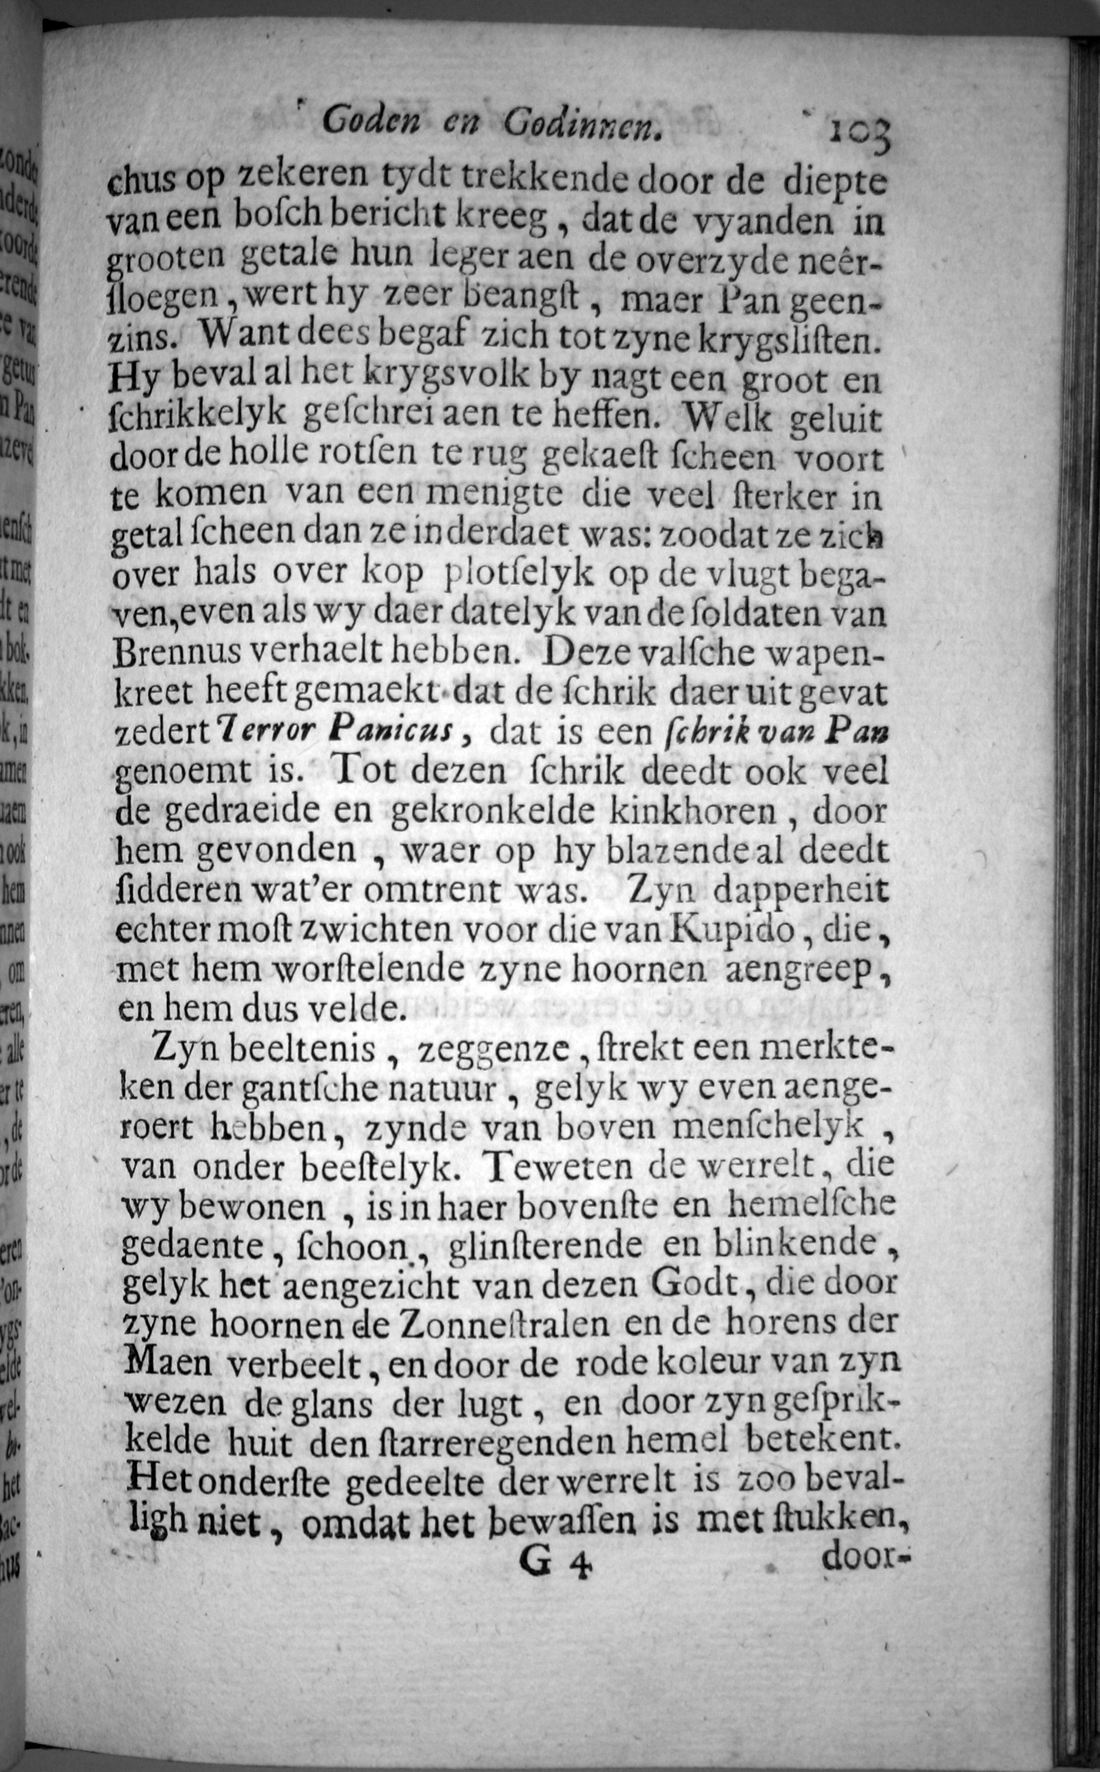 Goden en Godinnen. 103
chus op zekeren tydt trekkende door de diepte
van een boſch bericht kreeg, dat de vyanden in
grooten getale hun leger aen de overzyde neêr-
ſloegen, wert hy zeer beangſt, maer Pan geen-
zins. Want dees begaf zich tot zyne krygsliſten.
Hy beval al het krygsvolk by nagt een groot en
ſchrikkelyk geſchrei aen te heffen. Welk geluit
door de holle rotſen te rug gekaeſt ſcheen voort
te komen van een menigte die veel ſterker in
getal ſcheen dan ze inderdaet was: zoodat ze zich
over hals over kop plotſelyk op de vlugt bega-
ven, even als wy daer datelyk van de ſoldaten van
Brennus verhaelt hebben. Deze valſche wapen-
kreet heeft gemaekt dat de ſchrik daer uit gevat
zedert Terror Panicus, dat is een ſchrik van Pan
genoemt is. Tot dezen ſchrik deedt ook veel
de gedraeide en gekronkelde kinkhoren, door
hem gevonden, waer op hy blazende al deedt
ſidderen wat'er omtrent was. Zyn dapperheit
echter moſt zwichten voor die van Kupido, die,
met hem worſtelende zyne hoornen aengreep,
en hem dus velde.
Zyn beeltenis, zeggenze, ſtrekt een merkte-
ken der gantſche natuur, gelyk wy even aenge-
roert hebben, zynde van boven menſchelyk,
van onder beeſtelyk. Teweten de werrelt, die
wy bewonen, is in haer bovenſte en hemelſche
gedaente, ſchoon, glinſterende en blinkende,
gelyk het aengezicht van dezen Godt, die door
zyne hoornen de Zonneſtralen en de horens der
Maen verbeelt, en door de rode koleur van zyn
wezen de glans der lugt, en door zyn geſprik-
kelde huit den ſtarreregenden hemel betekent.
Het onderſte gedeelte der werrelt is zoo beval-
ligh niet, omdat het bewaſſen is met ſtukken,
G 4 door-